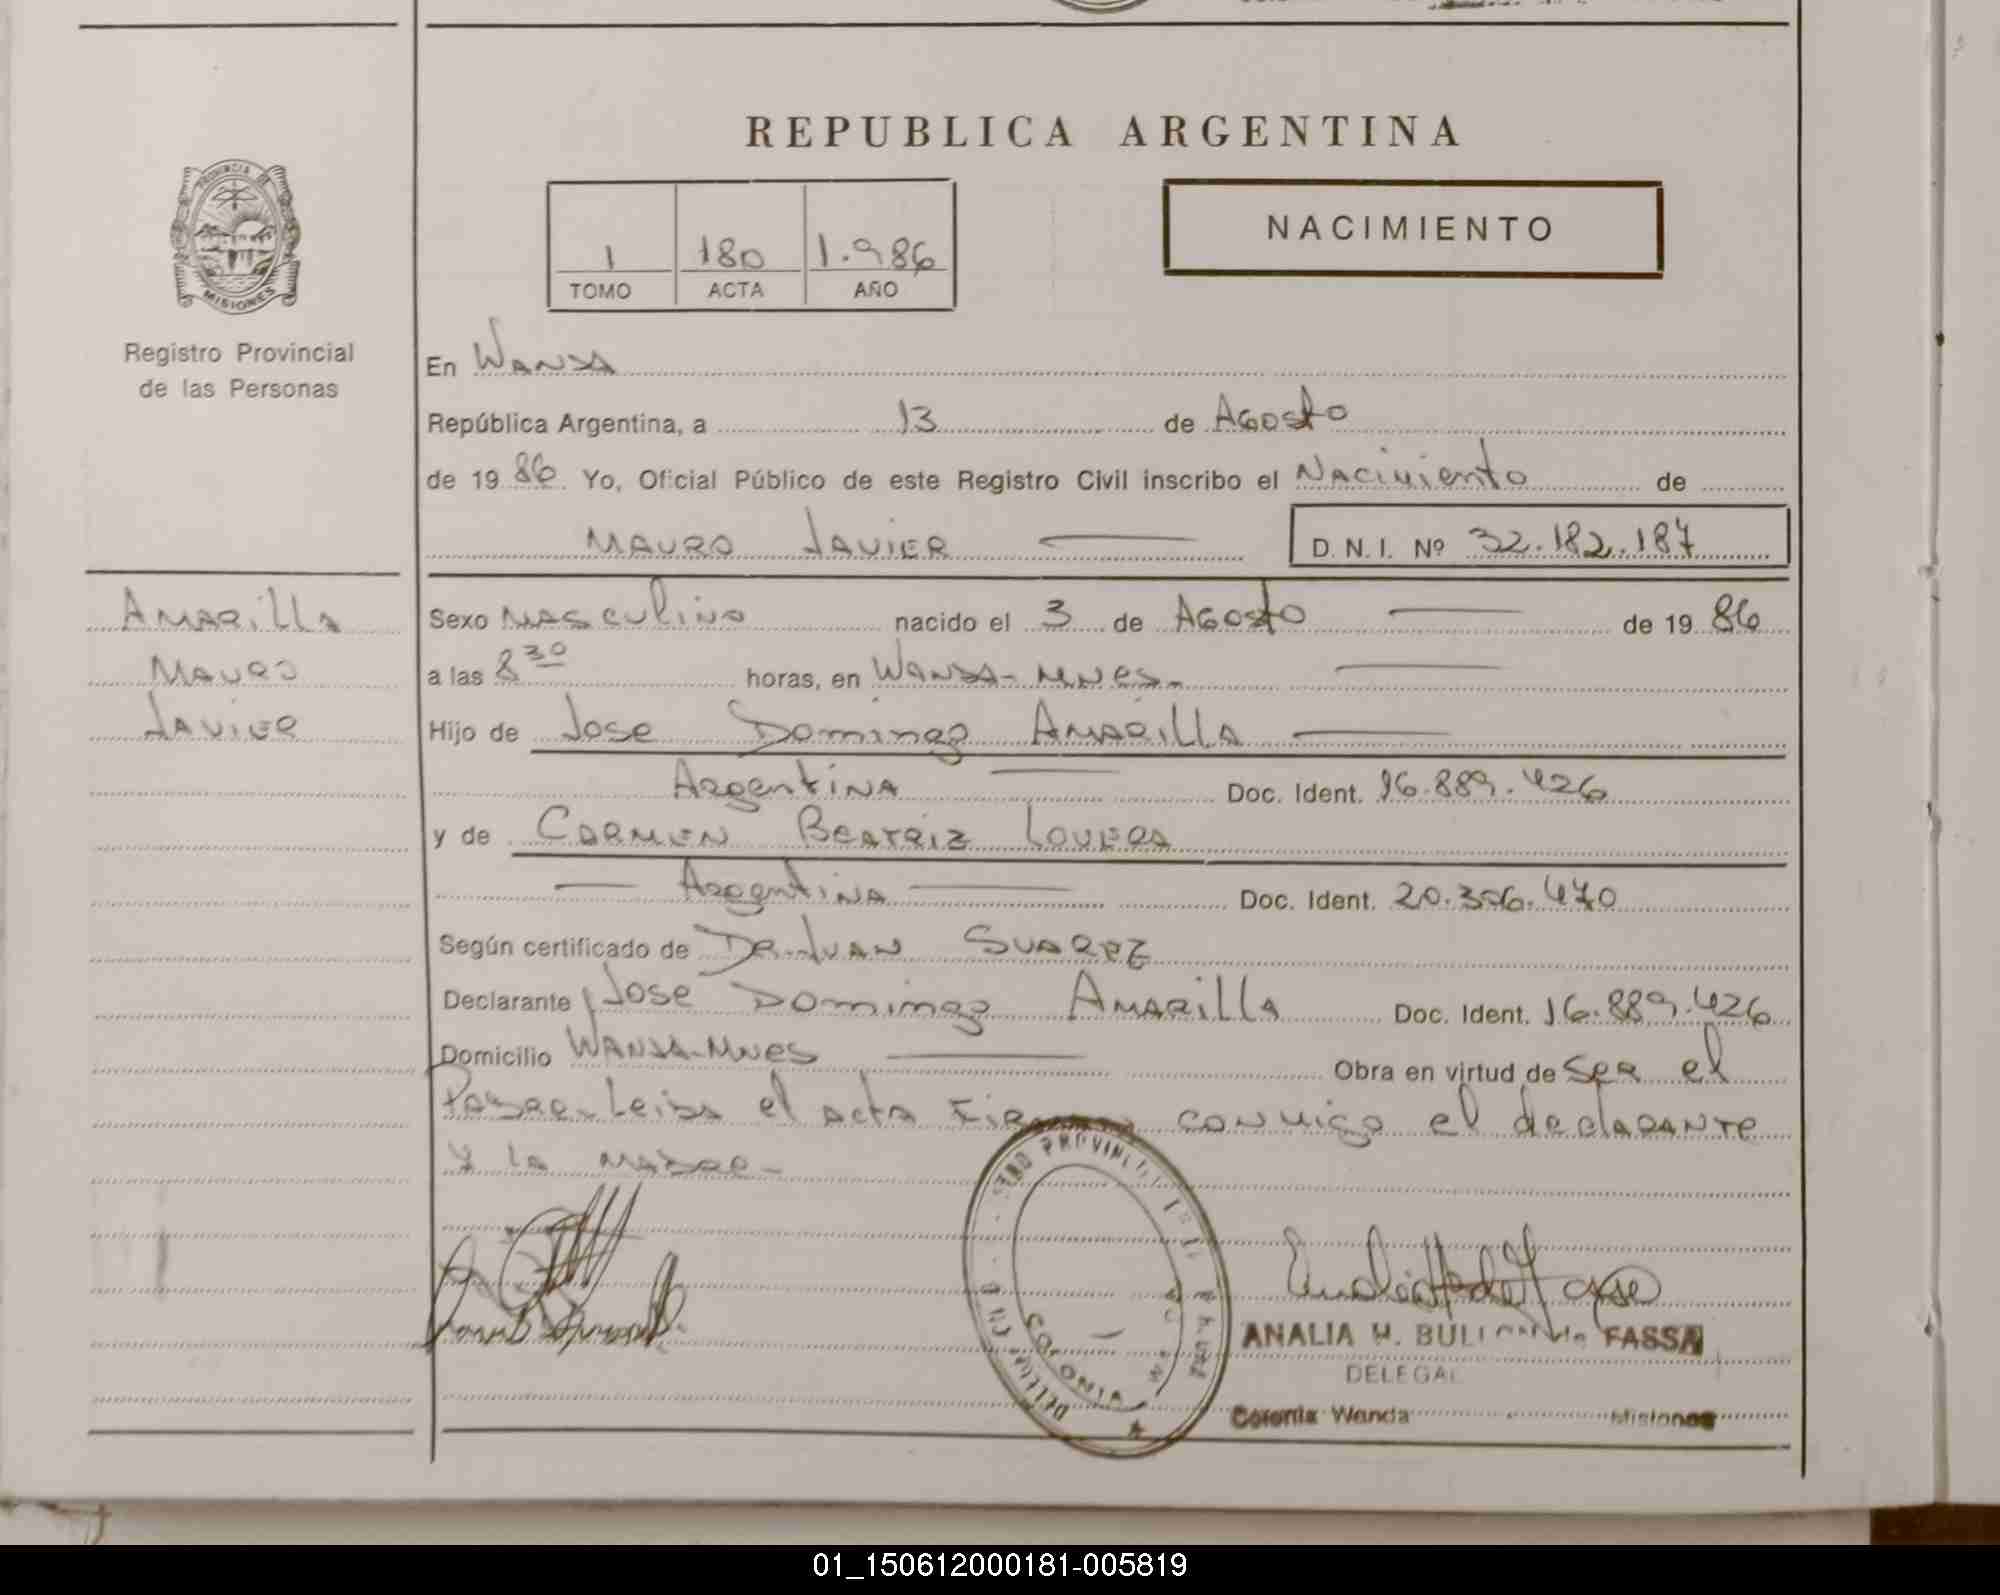 REPUBLICA ARGENTINA
NACIMIENTO
1 180 1.986
TOMO ACTA AÑO
PROVINCIA DE
MISIONES
Registro Provincial
de las Personas
En WANDA
República Argentina, a 13 de Agosto
de 19 86 Yo, Oficial Público de este Registro Civil inscribo el Nacimiento de
MAURO JAVIER D. N. I. Nº 32.182.187
AMARILLA
MAURO
JAVIER
Sexo MASCULINO nacido el 3 de AGOSTO de 19 86
a las 8 30 horas, en WANDA-MNES.
Hijo de JOSE DOMINGO AMARILLA
Argentina Doc. Ident. 16.889.426
y de CARMEN BEATRIZ LOVERA
Argentina Doc. Ident. 20.306.470
Según certificado de DR. JUAN SUAREZ
Declarante JOSE DOMINGO AMARILLA Doc. Ident. 16.889.426
Domicilio WANDA-MNES Obra en virtud de SER el
PADRE. Leida el acta conmigo el declarante
y la MADRE-
COLONIA
ANALIA FASSA
DELEGAD
Colonia Wanda Misiones
01_150612000181-005819